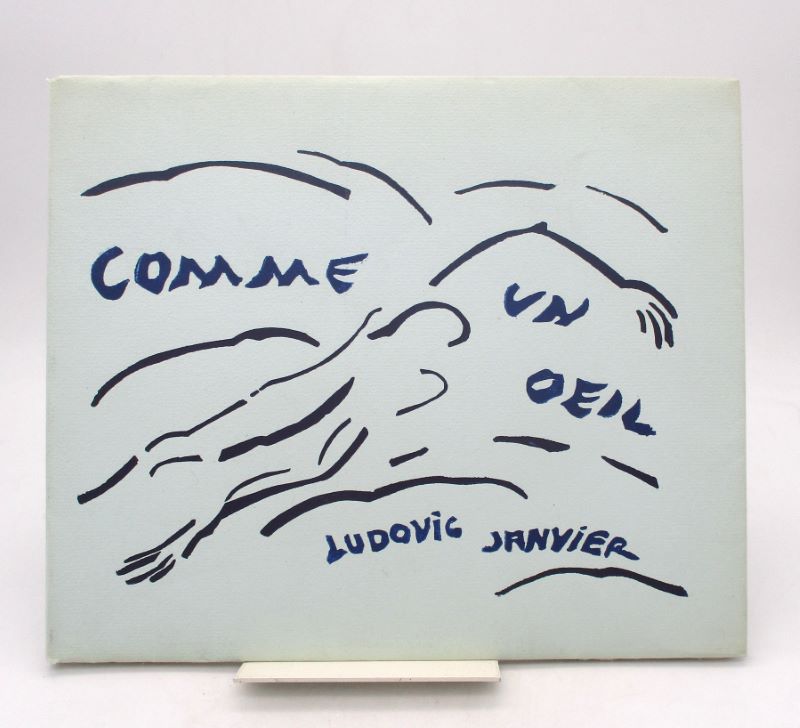 COMME
UN
OEIL
LUDOVIC JANVIER